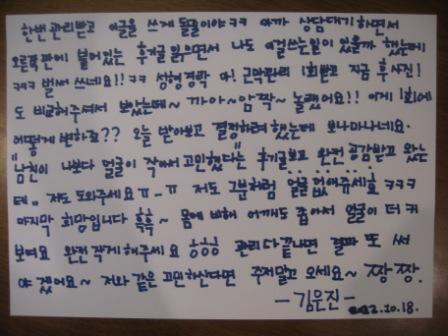 한번 관리받고 이글을 쓰게 될줄이야ㅋㅋ 아까 상담대기하면서
오른쪽 판에 붙어있는 후기글 읽으면서 나도 이걸쓰는날이 있을까 했는데
ㅋㅋㅋ 벌써 쓰네요!! ㅋㅋ 성형경락 아! 근막관리 1회받고 지금 후사진!
도 비교해주셔서 봤는데~ 까아~암짝~ 놀랬어요!! 이게 1회에
어떻게 변하죠?? 오늘 받아보고 결정하려 했는데 보나마나네요.
"남친이 나보다 얼굴이 작아서 고민했다"는 후기글보고 완전 공감받고 왔는
데.. 저도 도와주세요 ㅠ_ㅠ 저도 그분처럼 얼굴 없애주세효 ㅋㅋㅋ
마지막 희망입니다 흑흑~ 몸에 비해 어깨도 좁아서 얼굴이 더 커
보여요 완전작게 해주세요 ㅎㅎㅎ 관리 다 끝나면 결과 또 써
야겠어요~ 저와 같은 고민하신다면 주저말고 오세요~ 짱짱.
-김은진-
2012.10.18.